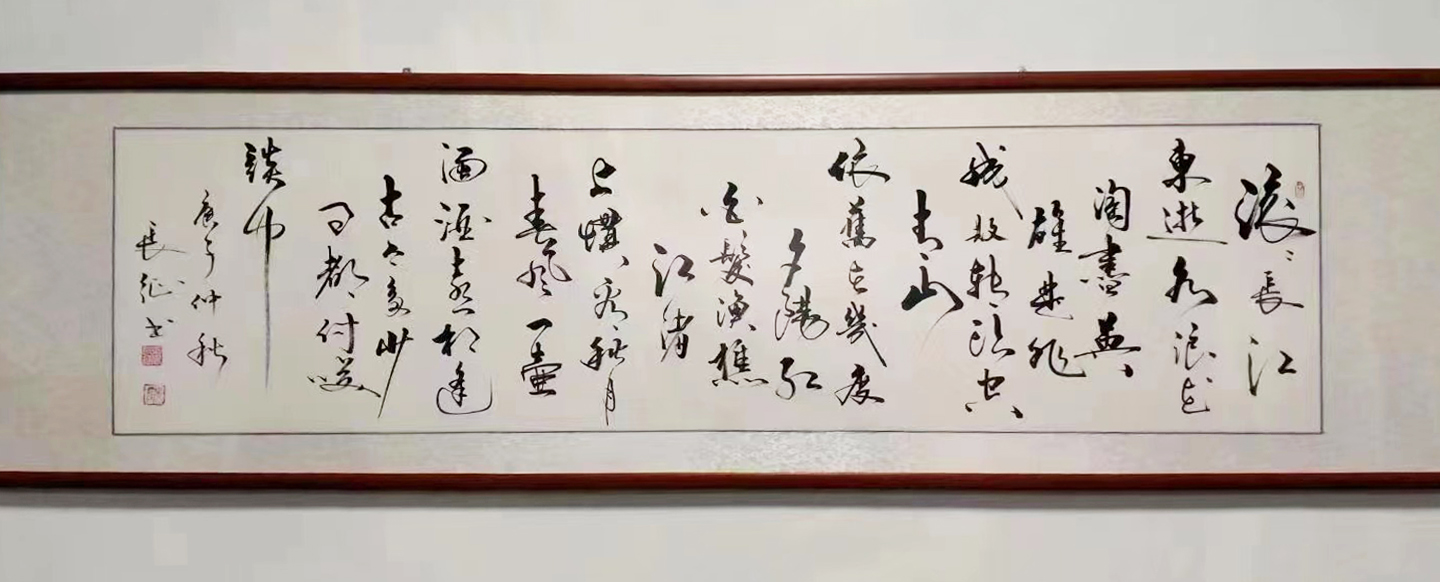 滚〻長江
東逝水浪花
淘盡英
雄是非
成敗轉頭空
青山
依舊在幾度
夕陽紅
白髮漁樵
江渚
上慣看秋月
春風一壷
酒喜相逢
古今多少
事都付笑
談中
庚子仲秋
長征书